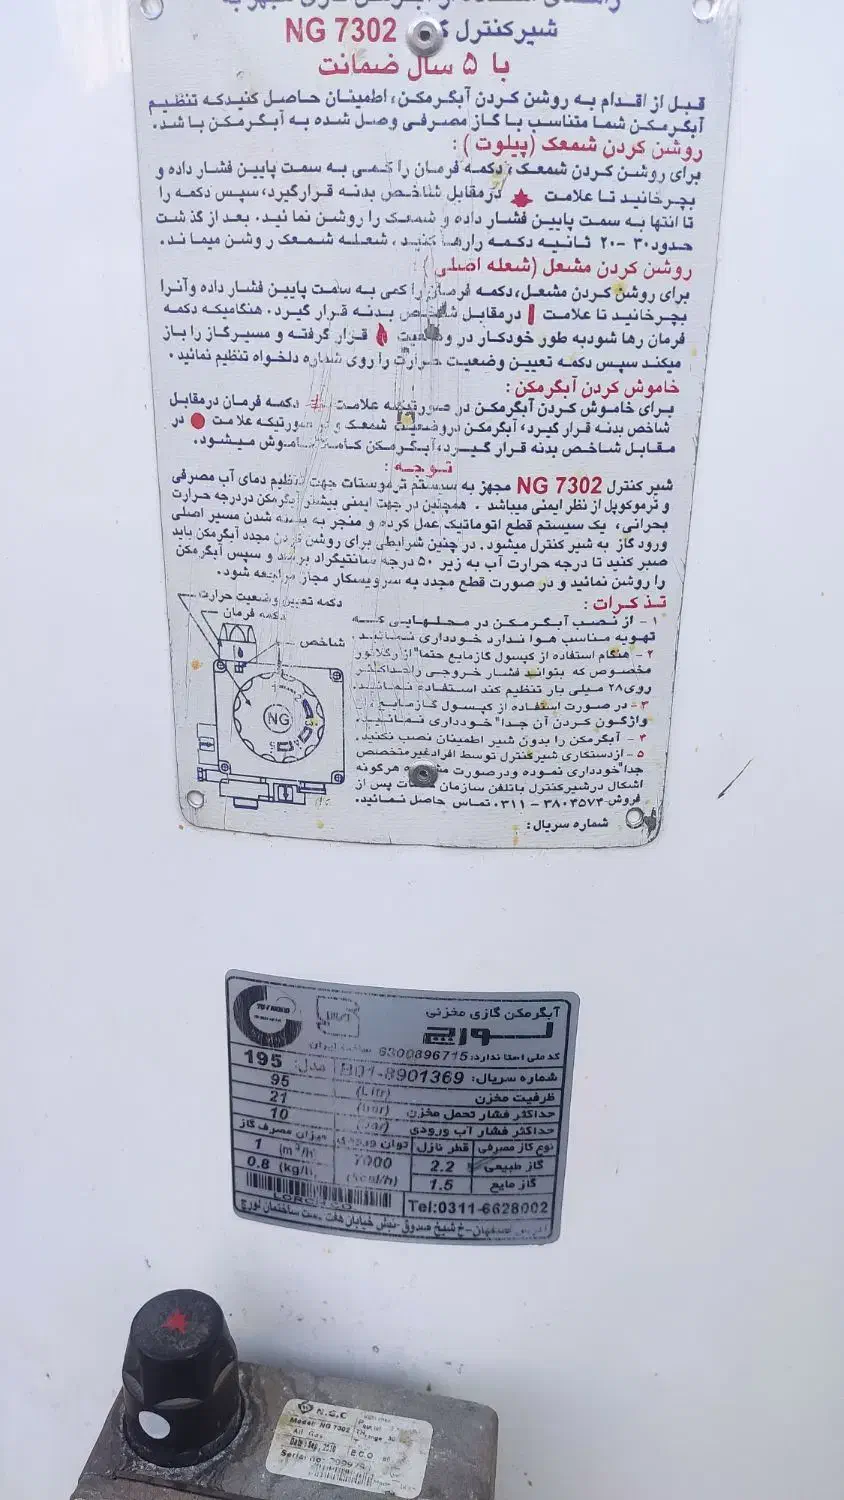 شیر کنترل NG 7302
با ۵ سال ضمانت
قبل از اقدام به روشن کردن آبگرمکن، اطمینان حاصل کنیدکه تنظیم
آبگرمکن شما متناسب با گاز مصرفی وصل شده به آبگرمکن باشد.
روشن کردن شمعک (پیلوت):
برای روشن کردن شمعک، دکمه فرمان را کمی به سمت پایین فشار داده و
بچرخانید تا علامت درمقابل شاخص بدنه قرارگیرد، سپس دکمه را
تا انتها به سمت پایین فشار داده و شمعک را روشن نمائید. بعد از گذشت
حدود ۳۰-۲۰ ثانیه دکمه رارها کنید، شعله شمعک روشن میماند.
روشن کردن مشعل (شعله اصلی):
برای روشن کردن مشعل، دکمه فرمان را کمی به سمت پایین فشار داده وآنرا
بچرخانید تا علامت درمقابل شاخص بدنه قرار گیرد. هنگامیکه دکمه
فرمان رها شودبه طور خودکار در وضعیت قرار گرفته و مسیرگاز را باز
میکند سپس دکمه تعیین وضعیت حرارت را روی شماره دلخواه تنظیم نمائید.
خاموش کردن آبگرمکن:
برای خاموش کردن آبگرمکن در صورتیکه علامت دکمه فرمان درمقابل
شاخص بدنه قرار گیرد، آبگرمکن دروضعیت شمعک و در صورتیکه علامت در
مقابل شاخص بدنه قرار گیرد، آبگرمکن کاملا خاموش میشود.
توجه:
شیر کنترل NG 7302 مجهز به سیستم ترموستات جهت تنظیم دمای آب مصرفی
و ترموکوپل از نظر ایمنی میباشد. همچنین در جهت ایمنی بیشتر آبگرمکن دردرجه حرارت
بحرانی، یک سیستم قطع اتوماتیک عمل کرده و منجر به بسته شدن مسیر اصلی
ورود گاز به شیر کنترل میشود. در چنین شرایطی برای روشن کردن مجدد آبگرمکن باید
صبر کنید تا درجه حرارت آب به زیر ۵۰ درجه سانتیگراد برسد و سپس آبگرمکن
را روشن نمائید و در صورت قطع مجدد به سرویسکار مجاز مراجعه شود.
تذکرات:
دکمه تعیین وضعیت حرارت
دکمه فرمان
شاخص
NG
۱- از نصب آبگرمکن در محلهایی که
تهویه مناسب هوا ندارد خودداری نمائید.
۲- هنگام استفاده از کپسول گازمایع حتما" از رگلاتور
مخصوص که بتواند فشار خروجی راحداکثر
روی۲۸ میلی بار تنظیم کند استفاده نمائید.
۳- در صورت استفاده از کپسول گازمایع، از
واژگون کردن آن جدا" خودداری نمائید.
۴- آبگرمکن را بدون شیر اطمینان نصب نکنید.
۵- ازدستکاری شیرکنترل توسط افرادغیرمتخصص
جدا"خودداری نموده ودرصورت هرگونه
اشکال درشیرکنترل باتلفن سازمان خدمات پس از
فروش ۳۸۰۴۵۷۴-۰۳۱۱ تماس حاصل نمائید.
شماره سریال:
آبگرمکن گازی مخزنی
لورچ
کد ملی استاندارد: 6300896715 ساخت ایران
شماره سریال: B01-8901369 مدل: 195
ظرفیت مخزن (Litr) 95
حداکثر فشار تحمل مخزن (bar) 21
حداکثر فشار آب ورودی (bar) 10
نوع گاز مصرفی قطر نازل توان ورودی میزان مصرف گاز
گاز طبیعی 2.2 7000 1 (m³/h)
گاز مایع 1.5 (kcal/h) 0.8 (kg/h)
Tel:0311-6628002
اصفهان-خ شیخ صدوق-نبش خیابان هفت دست ساختمان لورچ
N.G.C
Model: NG 7302
All Gas
E.C.O
Serial no: